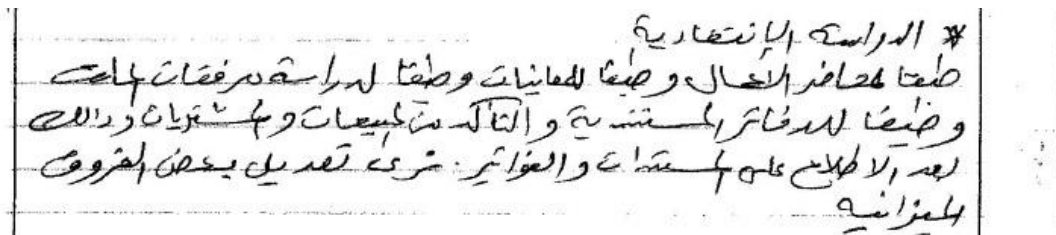 * الدراسة الإنتقادية
طبقا لمحاضر الأعمال و طبقا للمعاينات وطبقا لدراسة مرفقات الملف
و طبقا للدفاتر المستندية و التأكد من المبيعات و المشتريات و ذالك
بعد الاطلاع على المستندات و الفواتير. نرى تعديل بعض الفروق
الميزانية